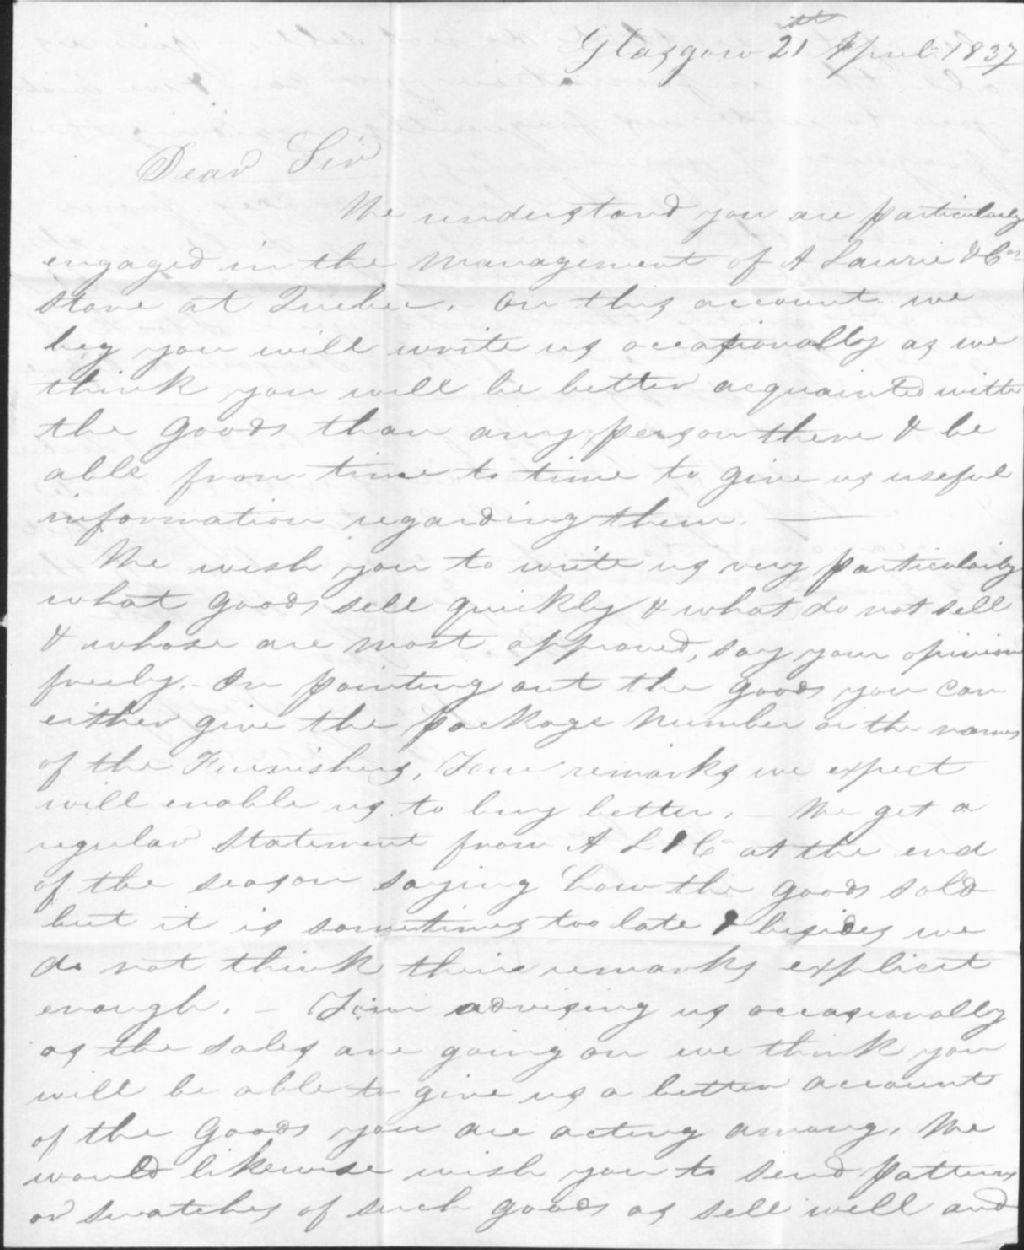 Glasgow 21th April 1837
Dear Sir
We understand you are particularly
engaged in the management of A Laurie & Cos
Store at Quebec. On this account we
beg you will write us occasionally as we
think you will be better acquainted with
the goods than any person there & be
able from time to time to give us useful
information regarding them. —
We wish you to write us very particularly
what goods sell quickly & what do not sell
& whose are most approved, say your opinion
freely. In pointing out the goods you can
either give the package number or the names
of the Furnishers, Your remarks we expect
will enable us to buy better. — We get a
regular Statement from A L & Co at the end
of the season saying how the goods sold
but it is sometimes too late & besides we
do not think their remarks explicit
enough. — Your advising us occasionally
as the sales are going on we think you
will be able to give us a better account
of the goods you are acting among. We
would likewise wish you to send patterns
or swatches of such goods as sell well and